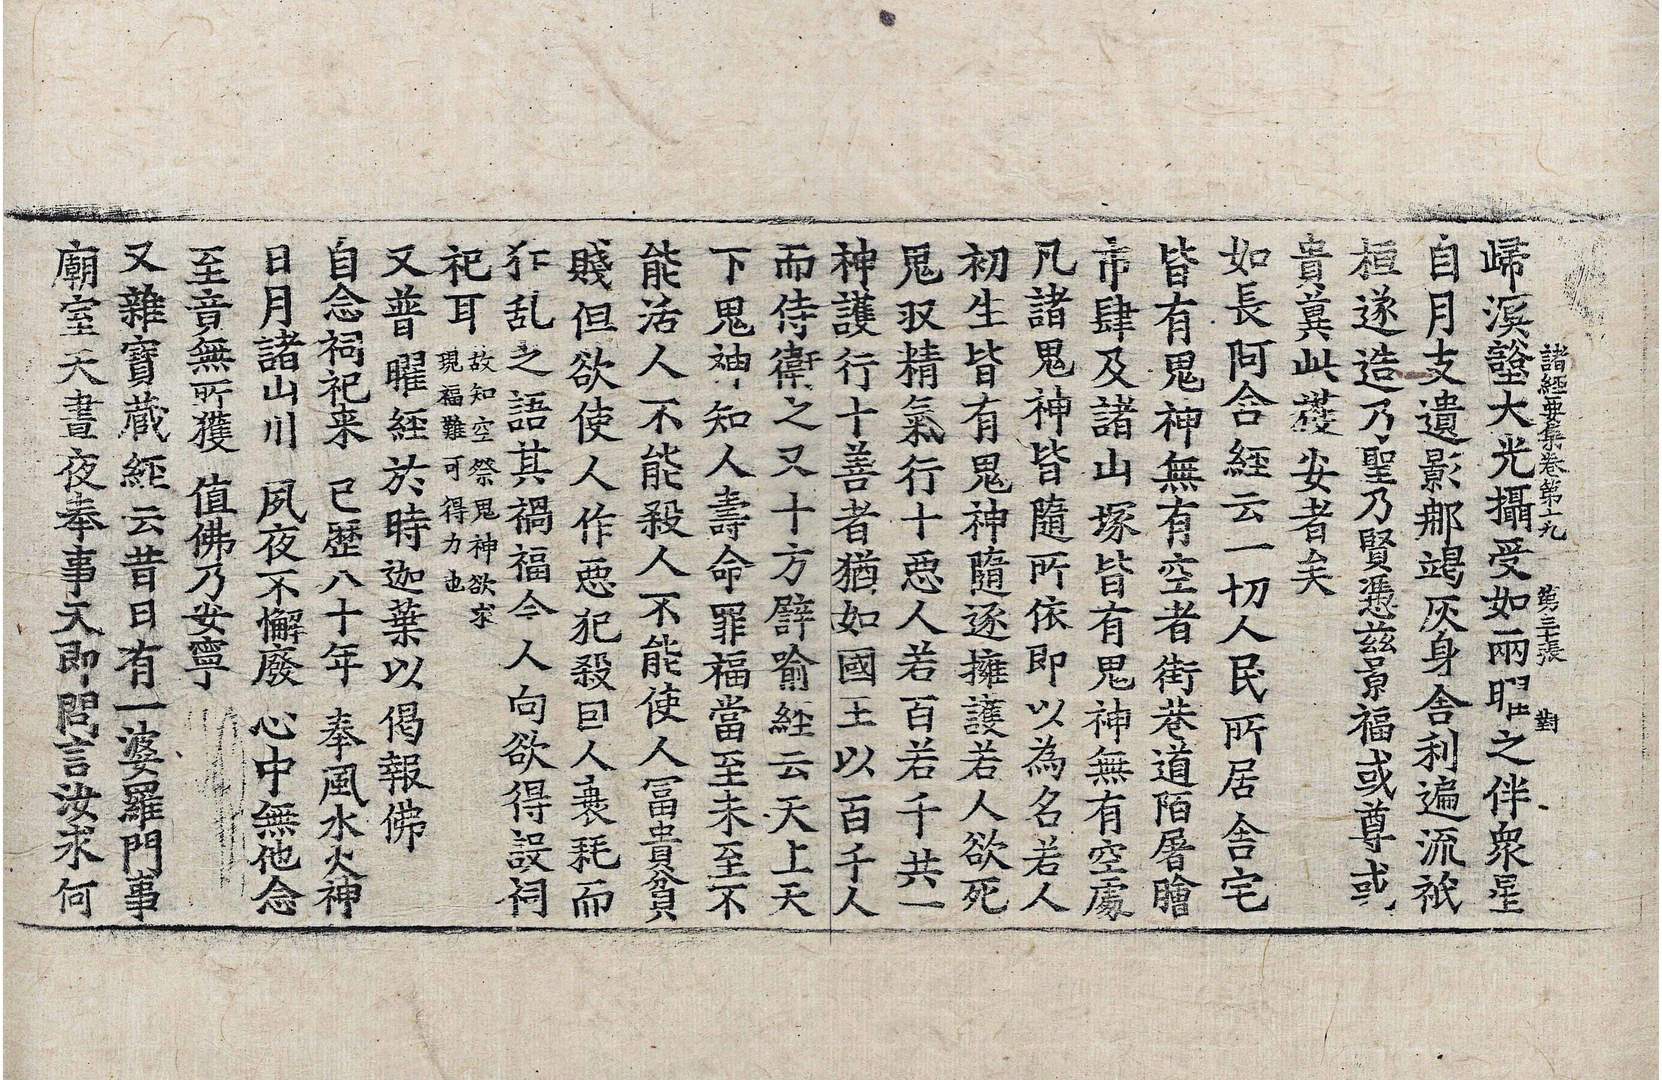 諸經要集卷第十九 第三張 對
歸溟壑大光攝受如兩曜之伴衆星
自月支遺影那竭灰身舍利遍流祇
桓遂造乃聖乃賢憑茲景福或尊或
貴冀此獲安者矣
如長阿含經云一切人民所居舍宅
皆有鬼神無有空者街巷道陌屠膾
市肆及諸山塚皆有鬼神無有空處
凡諸鬼神皆隨所依即以為名若人
初生皆有鬼神隨逐擁護若人欲死
鬼収精氣行十惡人若百若千共一
神護行十善者猶如國王以百千人
而侍衛之又十方譬喻經云天上天
下鬼神知人壽命罪福當至未至不
能活人不能殺人不能使人冨貴貧
賤但欲使人作惡犯殺因人衰耗而
犴乱之語其禍福令人向欲得設祠
祀耳故知空祭鬼神欲求
現福難可得力也
又普曜經於時迦葉以偈報佛
自念祠祀来 已歷八十年 奉風水火神
日月諸山川 夙夜不懈廢 心中無他念
至竟無所獲 值佛乃安寧
又雜寶藏經云昔日有一婆羅門事
廟室天晝夜奉事天即問言汝求何